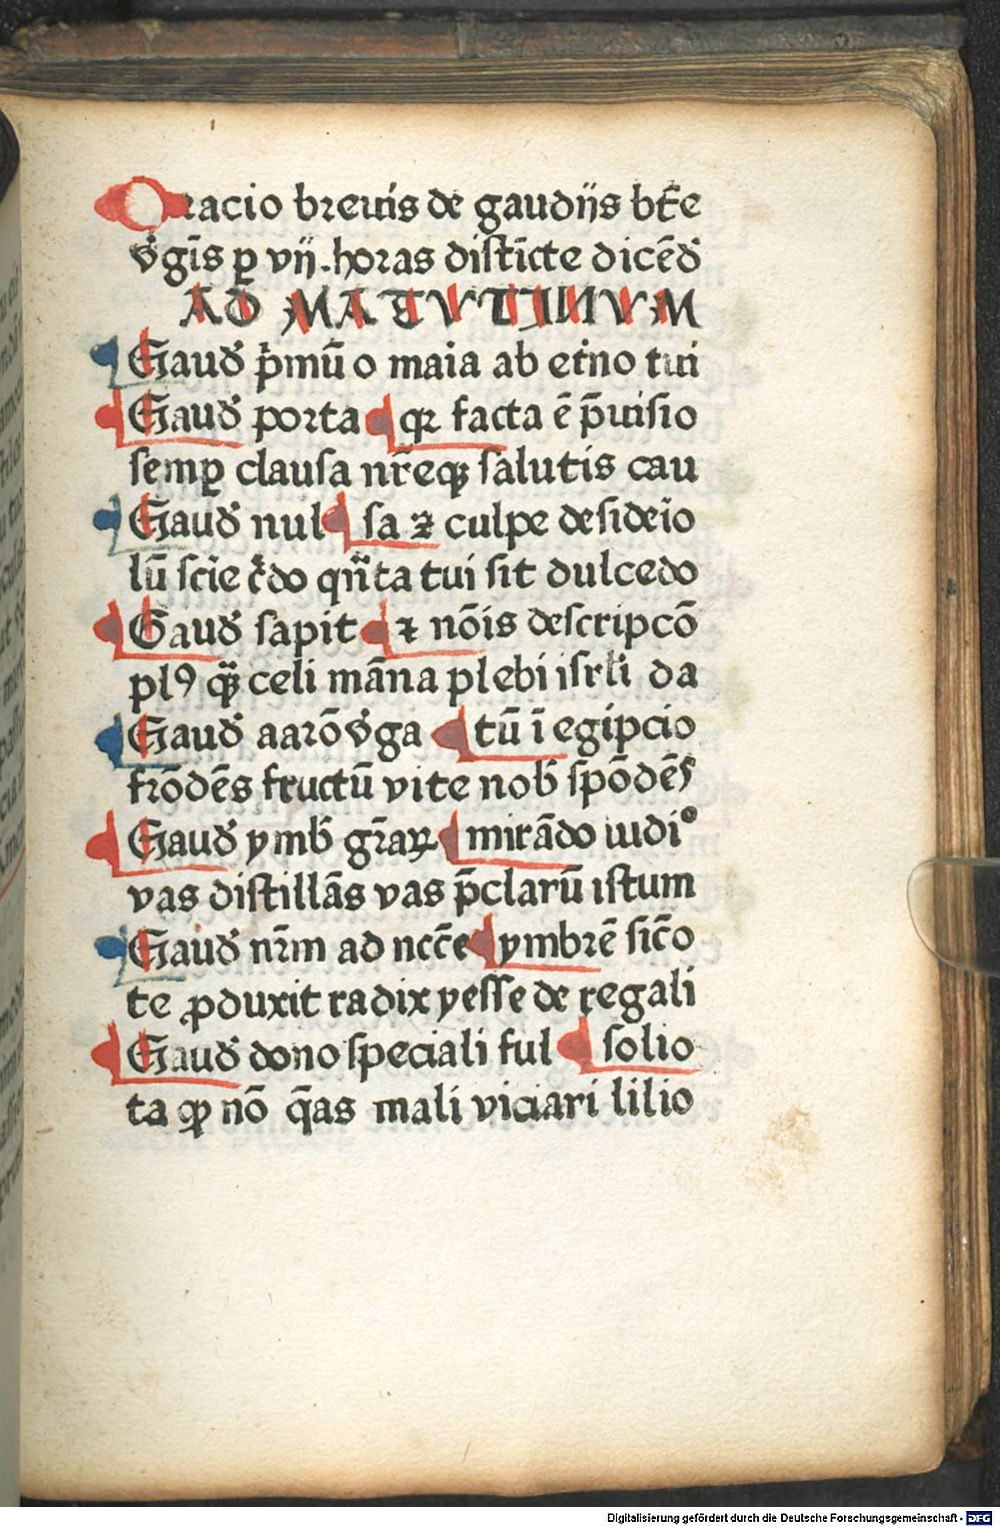 Oracio breuis de gaudijs bt̄e
v̾gīs ꝑ vij. horas distīcte dicēd̾
AD MATVTINVM
Gaud̾ p̾mū o maia ab et̾no tui
Gaud̾ porta qꝛ facta ē p̄uisio
semꝑ clausa nr̄eqꝫ salutis cau
Gaud̾ nul sa ⁊ culpe desideīo
lū scīe c̾do qn̄ta tui sit dulcedo
Gaud̾ sapit ⁊ nōis descripcō
plꝰ qꝫ celi māna plebi isrl̄i da
Gaud̾ aarō v̾ga tū ī egipcio
frōdēs fructū vite nob̄ spōdēs
Gaud̾ ymb̄ gr̄aꝝ mirādo iudi°
vas distillās vas p̄clarū istum
Gaud̾ nr̄m ad ncc̄e ymbrē sic̄o
te ꝓduxit radix yesse de regali
Gaud̾ dono speciali ful solio
ta ꝙ nō q̄as mali viciari lilio
Digitalisierung gefördert durch die Deutsche Forschungsgemeinschaft - DFG